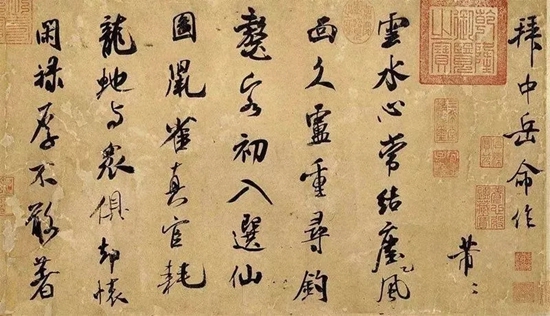 拜中岳命作
芾〻
雲水心常結塵風
面久盧重尋釣
鼇客初入選仙
圖鼠雀真官耗
龍虵与衆俱却懷
閑祿厚不敢著
乾隆御覽之寶